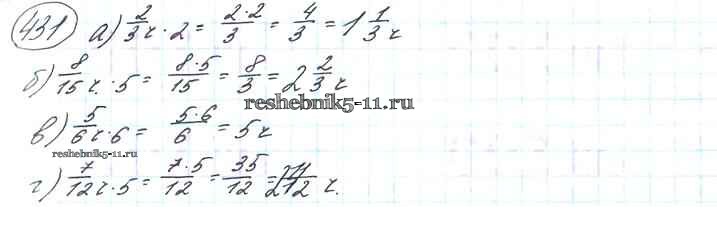 431 а) 2/3 ч · 2 = 2·2/3 = 4/3 = 1 1/3 ч
б) 8/15 ч · 5 = 8·5/15 = 8/3 = 2 2/3 ч
reshebnik5-11.ru
в) 5/6 ч · 6 = 5·6/6 = 5 ч
reshebnik5-11.ru
г) 7/12 ч · 5 = 7·5/12 = 35/12 = 2 11/12 ч.